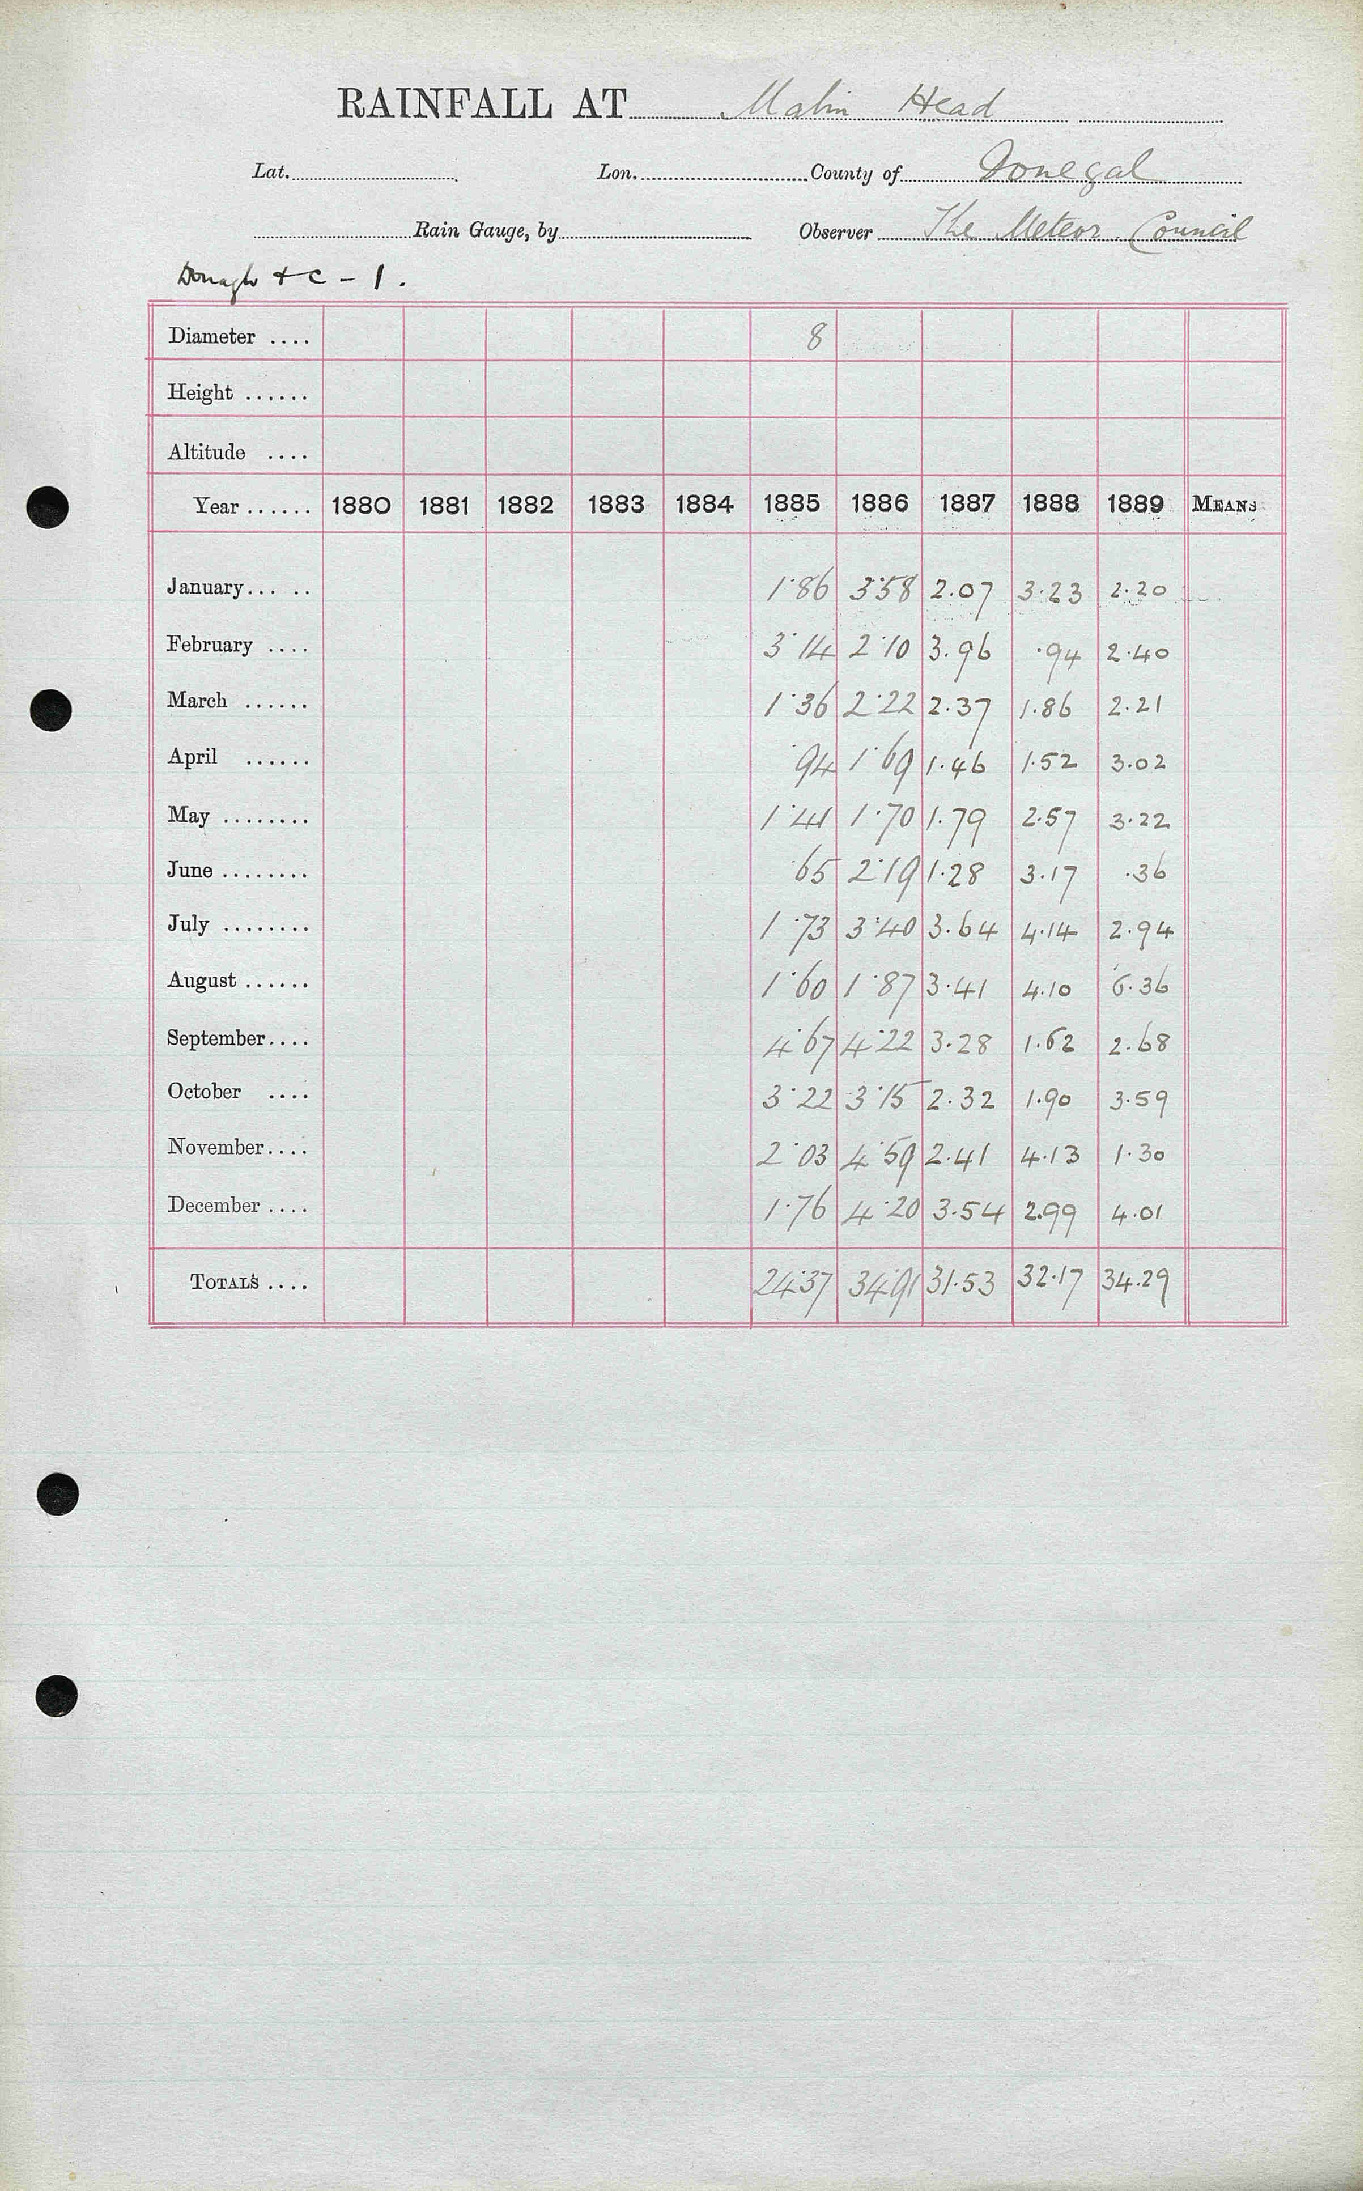 RAINFALL AT Malin Head
Lat. Lon. County of Donegal
Rain Gauge, by Observer The Meteor. Council
Donagh + C - 1.
Diameter .... 8
Height ......
Altitude ....
Year ...... 1880 1881 1882 1883 1884 1885 1886 1887 1888 1889 MEANS
January... .. 1.86 3.58 2.07 3.23 2.20
February .... 3.14 2.10 3.96 .94 2.40
March ...... 1.36 2.22 2.37 1.86 2.21
April ...... .94 1.69 1.46 1.52 3.02
May ........ 1.41 1.70 1.79 2.57 3.22
June ........ .65 2.19 1.28 3.17 .36
July ........ 1.73 3.40 3.64 4.14 2.94
August ...... 1.60 1.87 3.41 4.10 6.36
September.... 4.67 4.22 3.28 1.62 2.68
October .... 3.22 3.15 2.32 1.90 3.59
November.... 2.03 4.59 2.41 4.13 1.30
December .... 1.76 4.20 3.54 2.99 4.01
TOTALS .... 24.37 34.91 31.53 32.17 34.29